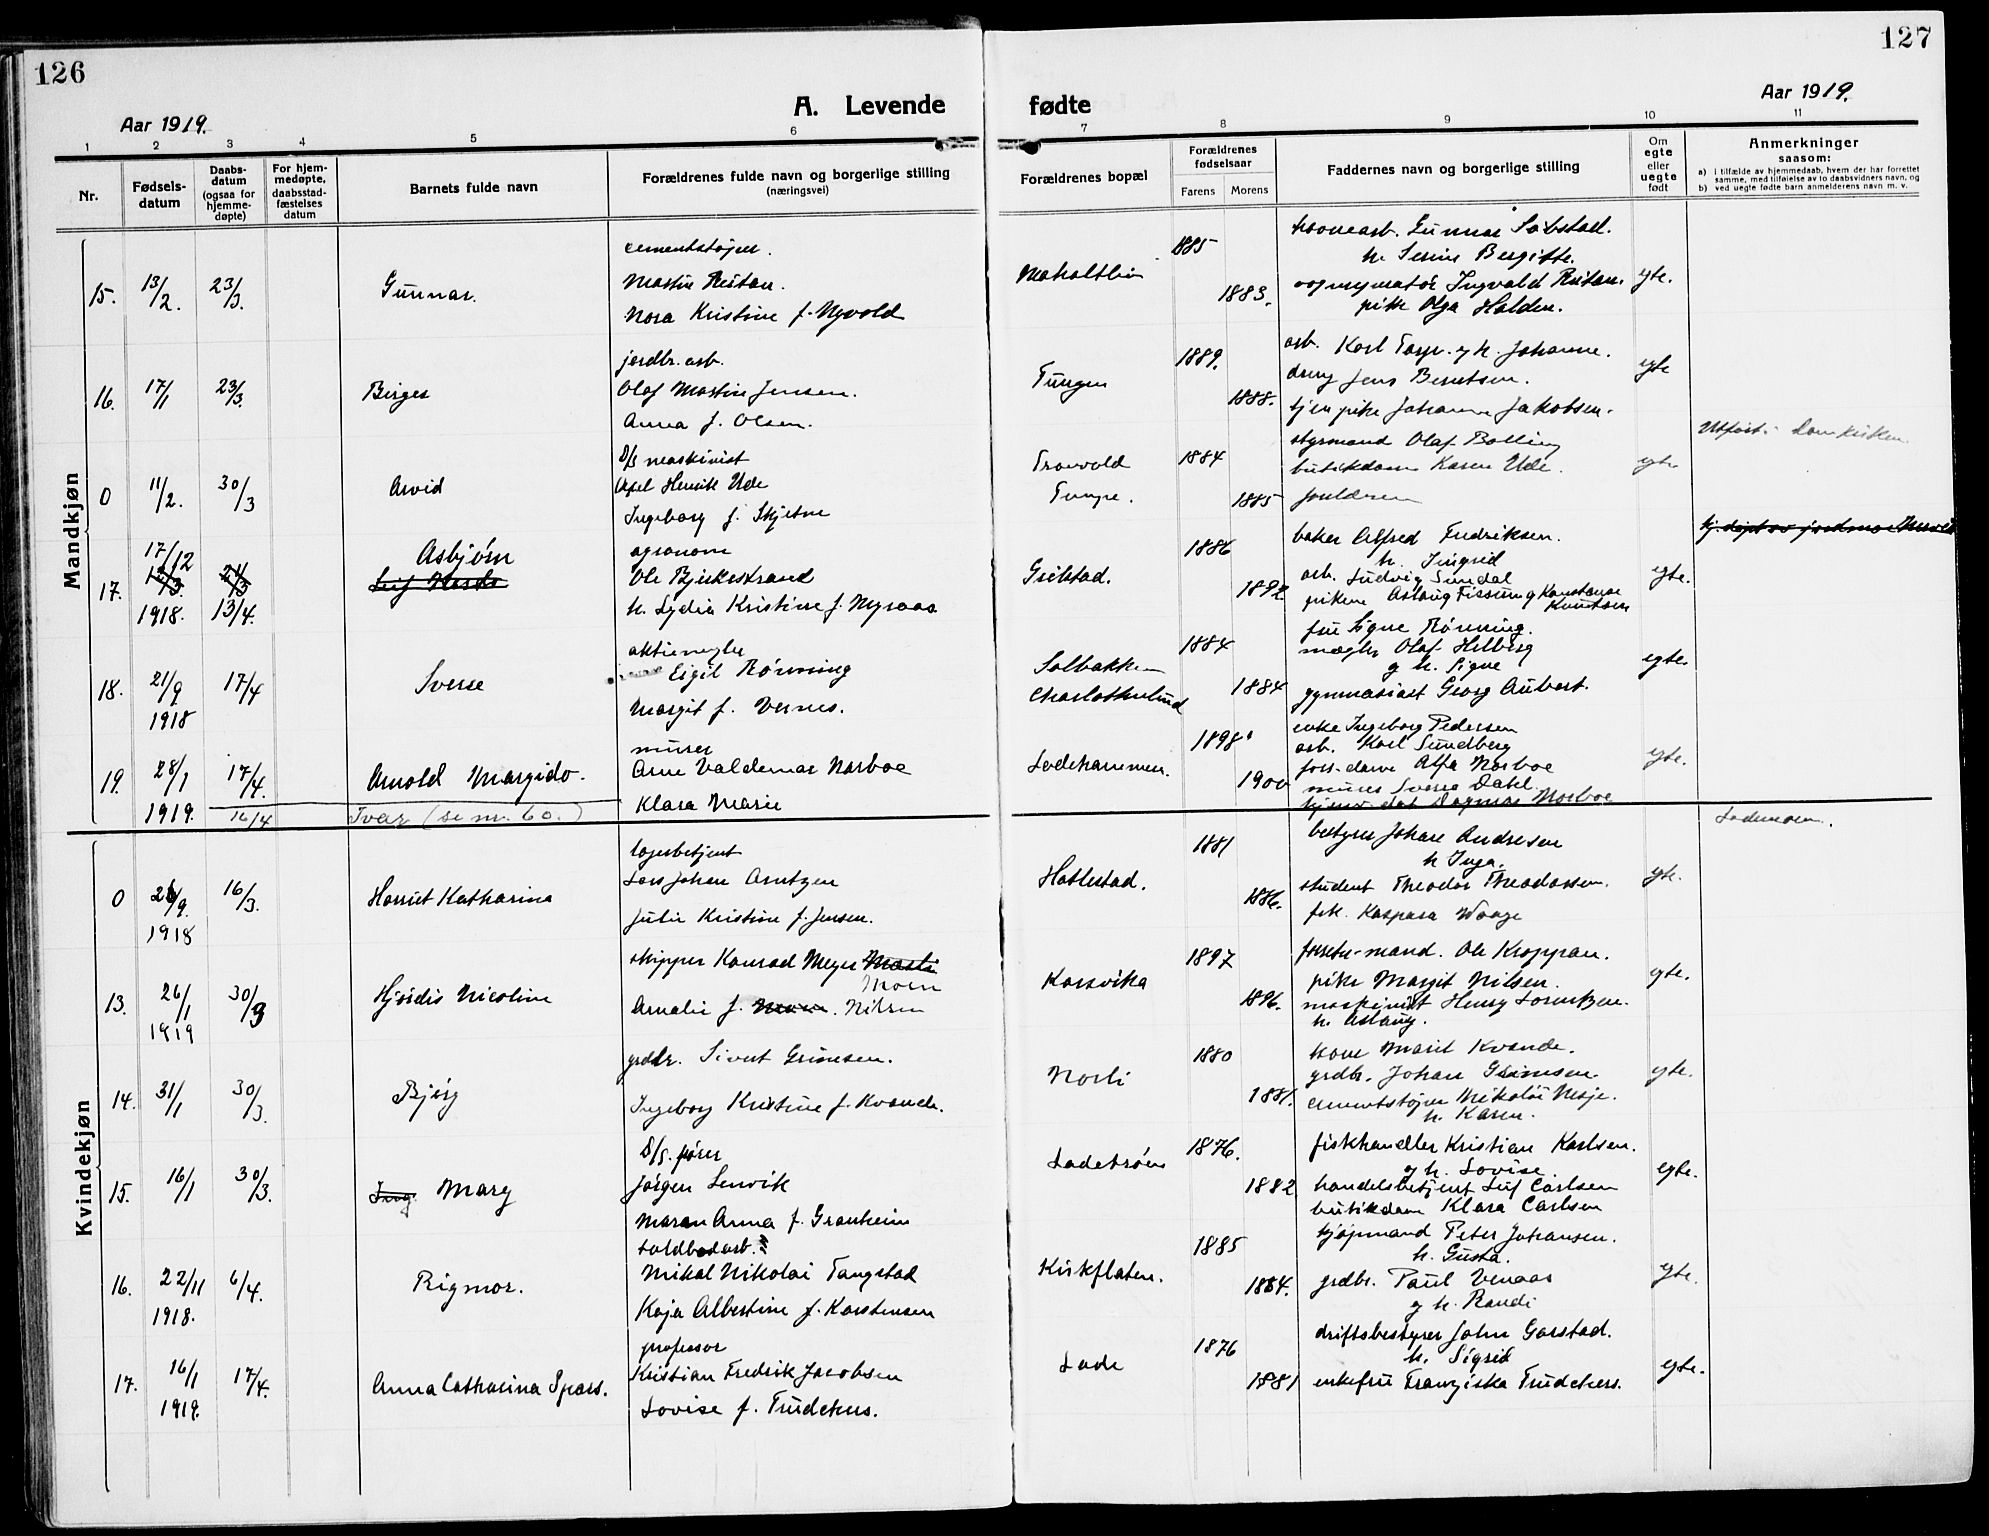 126
127
Aar 1919.
A. Levende
fødte
Aar 1919.
1 2 3 4 5 6 7 8 9 10 11
Nr.
Fødsels-
datum
Daabs-
datum
(ogsaa for
hjemme-
døpte)
For hjem-
medøpte,
daabsstad-
fæstelses
datum
Barnets fulde navn
Forældrenes fulde navn og borgerlige stilling
(næringsvei)
Forældrenes bopæl
Forældrenes
fødselsaar
Farens Morens
Faddernes navn og borgerlige stilling
Om
egte
eller
uegte
født
Anmerkninger
saasom:
a) i tilfælde av hjemmedaab, hvem der har forrettet
samme, med tilføielse av to daabsvidners navn, og
b) ved uegte fødte barn anmelderens navn m. v.
Mandkjøn
15. 13/2. 23/3. Gunnar.
cementstøper.
Martin Reitan.
Nora Kristine f. Nyvold
1885
1883.
h. Serine Bergitte.
Ingvald Reitan.
pike Olga Halden.
egte.
16. 17/1 23/3. Birger
jordbr. arb.
Olaf Martin Jensen.
Anna f. Olsen.
Tungen
1889.
1888.
arb. Karl Torp. og h. Johanne.
dreng Jens Berntsen.
tjen. pike Johanne Jakobsen.
egte
0 11/2. 30/3 Arvid
D/S maskinist
Axel Henrik Ude
Ingeborg f. Skjetne
1884
1885
styrmand Olaf Bolling
butikdame Karen Ude.
forældrene
egte
Utført i Domkirken
17. 17/12 1918. 13/4. Asbjørn
agronom
Ole Bjerkestrand
h. Lydia Kristine f. Nyraaa
Grilstad.
1886
1892
baker Alfred Fredriksen.
h. Ingrid
arb. Ludvig Sundal
pikene Aslaug Fissum og Konstanse
Knutsen
egte.
18. 21/9 1918 17/4 Sverre
aktiemegler
Eigil Rønning
Margit f. Vernes.
Solbakken
Charlottenlund
1884
1884
fru Signe Rønning.
mægler Olaf Hilberg
og h. Signe
gymnasiast Georg Aubert.
egte.
19. 28/1 1919. 17/4. Arnold Margido.
murer
Arne Valdemar Norboe
Klara Marie
Ladehammeren.
1898
1900
enke Ingeborg Pedersen
arb. Karl Sundberg
Alfa Norboe
murer Sverre Dahl.
Dagmar Norboe
egte.
16/4 Ivar (se nr. 60.)
Lademoen.
Kvindekjøn
0 26/9. 1918 16/3. Harriet Katharina
lagerbetjent
Lars Johan Arntzen
Julie Kristine f. Jensen.
Hallestad.
1881
1886.
bestyrer Johan Andresen
h Inga.
student Theodor Theodorsen.
frk. Kaspara Waage
egte.
13. 26/1 1919 30/3 Hjørdis Nicoline
skipper Konrad Meyer
Moen
Amalie f. Nilsen
Korsvika
1897
1896.
Ole Kroppan.
pike Margit Nilsen.
maskinist Henry Lorentzen.
h. Aslaug.
egte.
14. 31/1 30/3. Bjørg
grdbr. Sivert Grimsen.
Ingeborg Kristine f. Kvande.
Norli
1880
1881.
kone Marit Kvande.
grdbr. Johan Grimsen.
cementstøper Nikolai Moje.
h. Karen.
egte.
15. 16/1 30/3. Mary
D/S. fører
Jørgen Lervik
Maren Anna f. Granheim
Ladebroen
1876.
1882
fiskhandler Kristian Karlsen.
og h. Lovise.
handelsbetjent Leif Carlsen
butikdam Klara Carlsen
egte.
16. 22/11 1918. 6/4. Rigmor.
toldbodarb.
Mikal Nikolai Tangstad
Kaja Albertine f. Karstensen
Kirkflaten.
1885
1884.
kjøpmand Peter Johansen.
h. Gusta.
grdbr. Paul Venaas
og h. Randi
egte.
17. 16/1 1919. 17/4. Anna Catharina Spars.
professor
Kristian Fredrik Jacobsen
Lovise f. Trudehus.
Lade
1876
1881
driftsbestyrer John Garstad.
h. Sigrid
enkefru Franziska Trudehus.
egte.